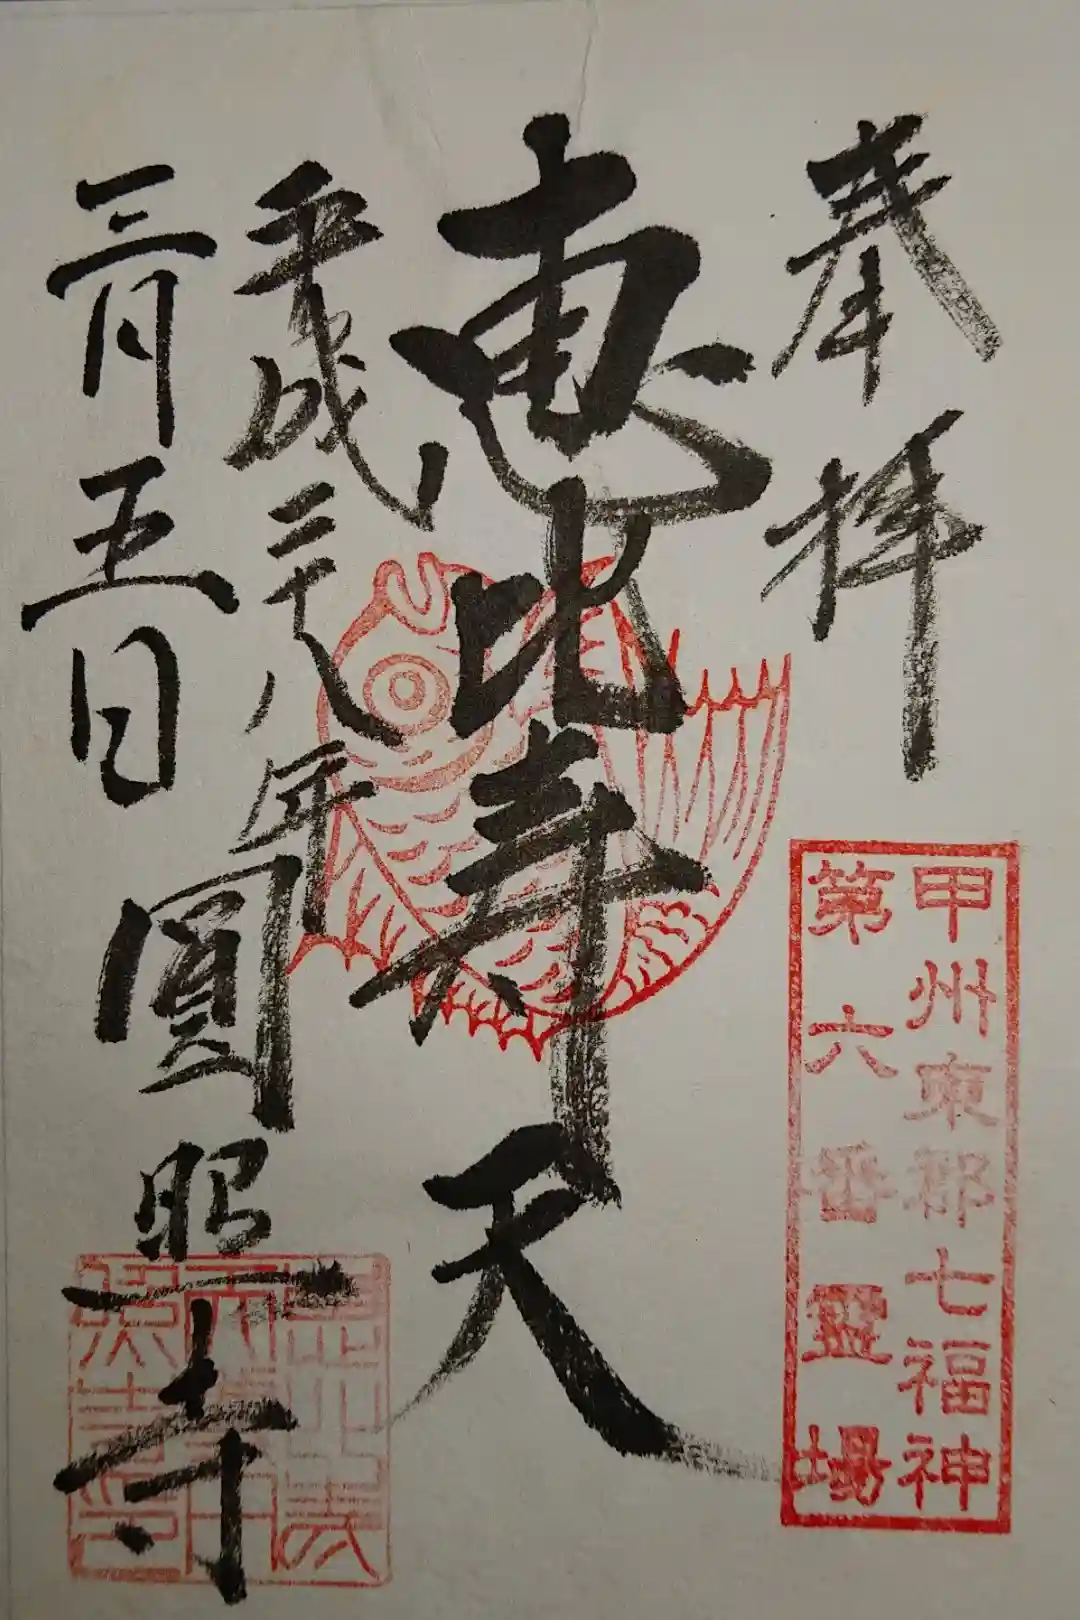 奉拝
甲州東郡七福神
第六番霊場
恵比寿天
平成二十八年
三月五日
圓照寺